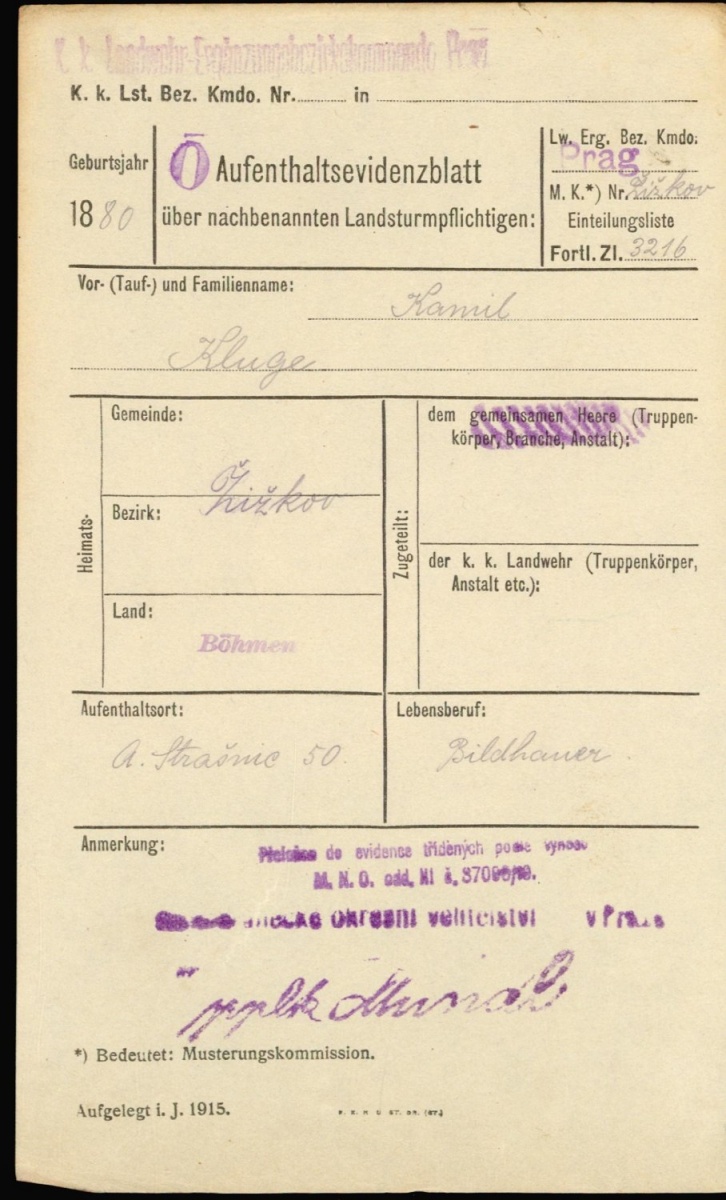 K. k. Landwehr-Ergänzungsbezirkskommando Prag
K. k. Lst. Bez. Kmdo. Nr. in
Geburtsjahr
1880
Ō Aufenthaltsevidenzblatt
über nachbenannten Landsturmpflichtigen:
Lw. Erg. Bez. Kmdo:
Prag
M. K.*) Nr. Žižkov
Einteilungsliste
Fortl. Zl. 3216
Vor- (Tauf-) und Familienname:
Kamil
Kluge
Heimats-
Gemeinde:
Žižkov
Bezirk:
Land:
Böhmen
Zugeteilt:
dem gemeinsamen Heere (Truppen-
körper, Branche, Anstalt):
der k. k. Landwehr (Truppenkörper,
Anstalt etc.):
Aufenthaltsort:
A. Strašnic 50.
Lebensberuf:
Bildhauer.
Anmerkung:
do evidence tříděných podle výnosu
M. N. O. odd. XI č.
okresní velitelství v Praze
*) Bedeutet: Musterungskommission.
Aufgelegt i. J. 1915.